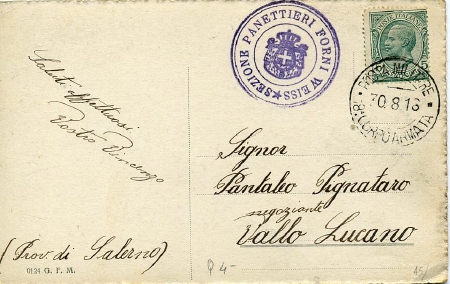 Saluti Militari
Vostro Vincenzo
(Prov. di Salerno)
0124 G. F. M.
★SEZIONE PANETTIERI FORNI WEISS
POSTA MILITARE
30.8.16
8° CORPO ARMATA
Signor
Pantaleo Pignataro
negoziante
Vallo Lucano